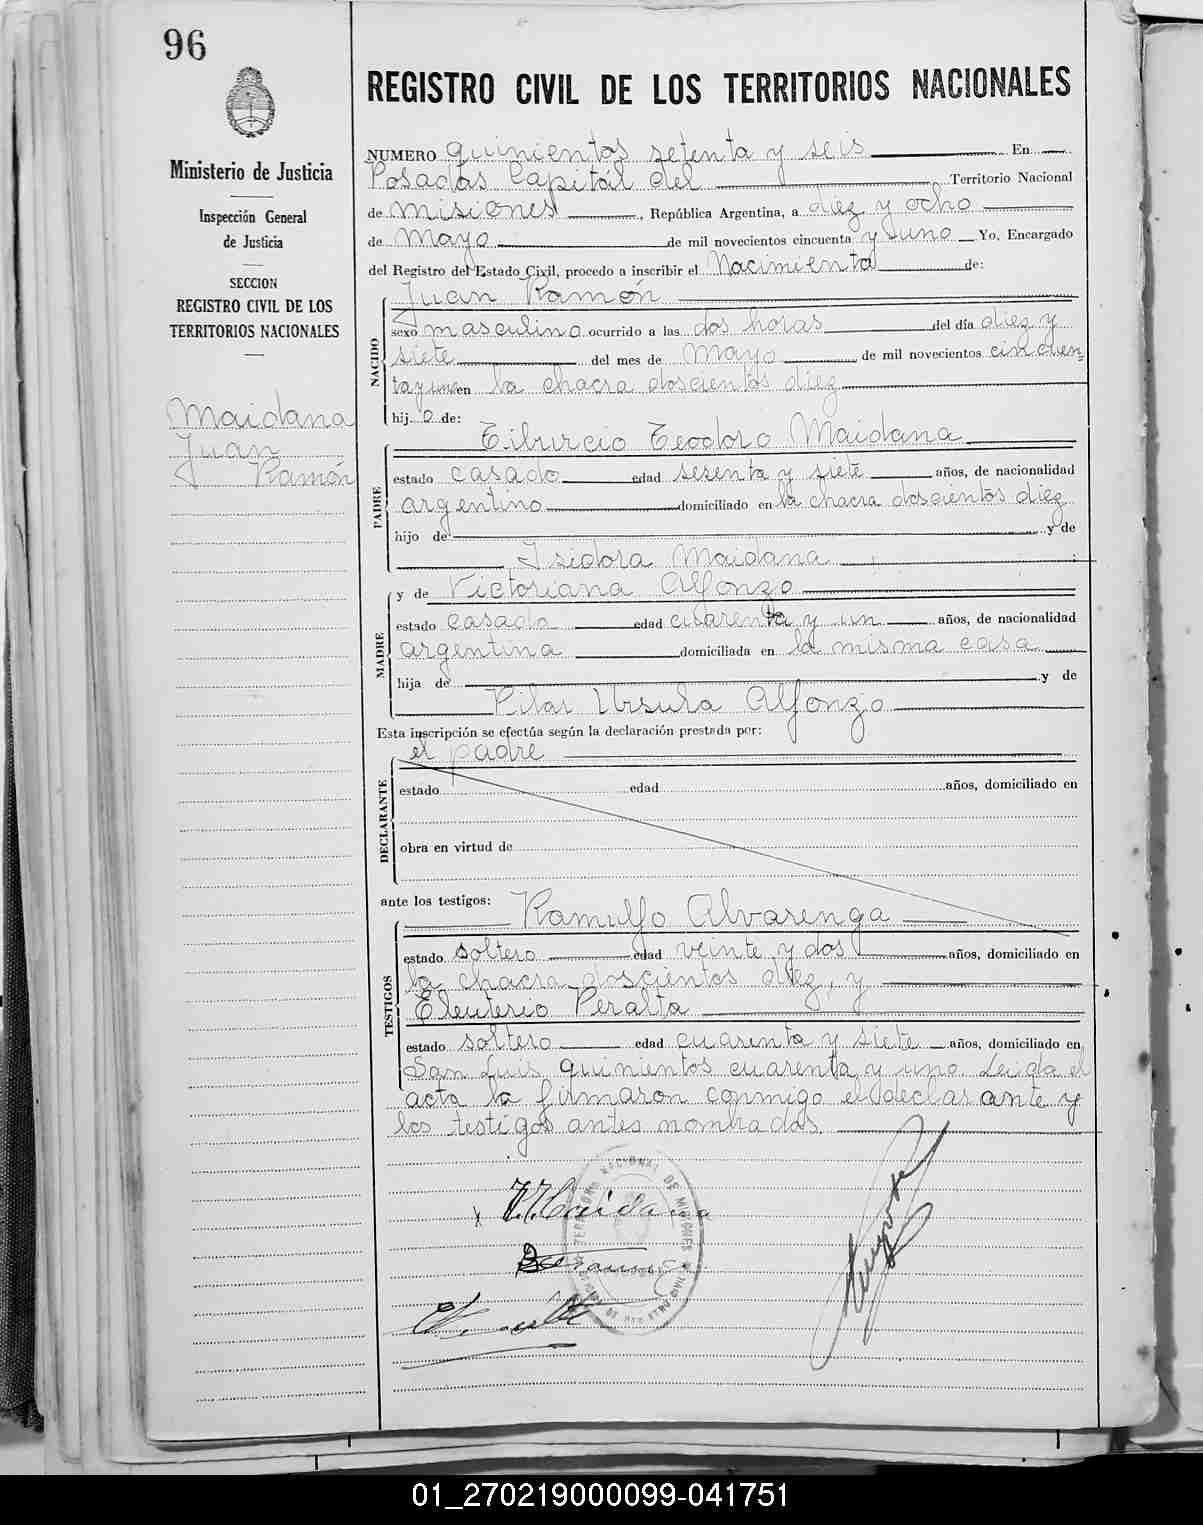 96
REGISTRO CIVIL DE LOS TERRITORIOS NACIONALES
Ministerio de Justicia
Inspección General
de Justicia
SECCION
REGISTRO CIVIL DE LOS
TERRITORIOS NACIONALES
Maidana
Juan
Ramón
NUMERO quinientos setenta y seis En
Posadas Capital del Territorio Nacional
de Misiones, República Argentina, a diez y ocho
de Mayo de mil novecientos cincuenta y uno Yo, Encargado
del Registro del Estado Civil, procedo a inscribir el Nacimiento de:
NACIDO
Juan Ramón
sexo masculino ocurrido a las dos horas del día diez y
siete del mes de Mayo de mil novecientos cincuen-
ta y uno en la chacra doscientos diez
hij o de:
PADRE
Tiburcio Teodoro Maidana
estado casado edad sesenta y siete años, de nacionalidad
argentino domiciliado en la chacra doscientos diez
hijo de y de
Isidora Maidana
MADRE
y de Victoriana Alfonzo
estado casada edad cuarenta y un años, de nacionalidad
argentina domiciliada en la misma casa
hija de y de
Pilar Ursula Alfonzo
Esta inscripción se efectúa según la declaración prestada por:
DECLARANTE
el padre
estado edad años, domiciliado en
obra en virtud de
ante los testigos:
TESTIGOS
Ramulfo Alvarenga
estado soltero edad veinte y dos años, domiciliado en
la chacra doscientos diez, y
Eleuterio Peralta
estado soltero edad cuarenta y siete años, domiciliado en
San Luis quinientos cuarenta y uno. Leida el
acta la firmaron conmigo el declarante y
los testigos antes nombrados.
T. T. Maidana
01_270219000099-041751